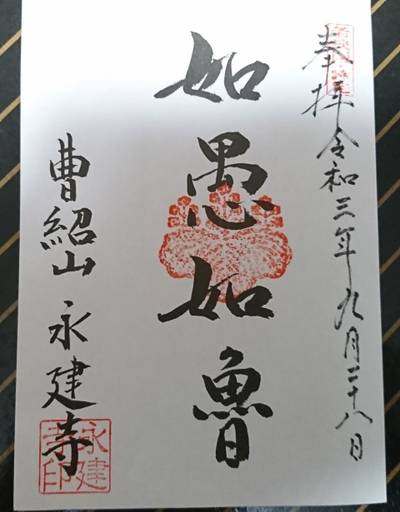 奉拝 令和三年九月二十八日
如愚如魯
曹紹山 永建寺
永建寺印